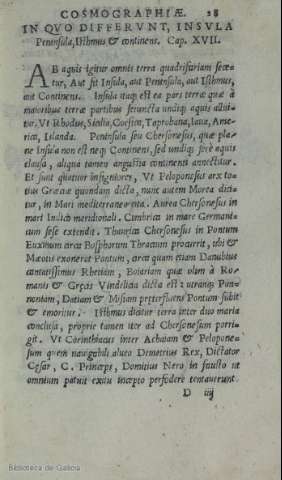 COSMOGRAPHIÆ. 28
IN QVO DIFFERVNT, INSVLA
Peninsula, Isthmus & continens. Cap. XVII.
AB aquis igitur omnis terra quadrifariam seca
tur, Aut sit Insula, aut Peninsula, aut Isthmus,
aut Continens. Insula itaq; est ea pars terræ quæ à
maioribus terræ partibus seiuncta undiq; aquis allui-
tur. Vt Rhodus, Sicilia, Corsica, Taprobana, Iaua, Ame-
rica, Islanda. Peninsula seu Chersonesus, quæ pla-
ne Insula non est neq; Continens, sed undiq; ferè aquis
clausa, aliqua tamen angustia continenti annectitur.
Et sunt quatuor insigniores, Vt Peloponesus arx to
tius Græciæ quondam dicta, nunc autem Morea dici
tur, in Mari mediterraneo. Aurea Chersonesus in
mari Indico meridionali. Cimbrica in mare Germani-
cum sese extendit. Thaurica Chersonesus in Pontum
Euxinum circa Bosphorum Thracum procurrit, ubi &
Mæotis exonerat Pontum, circa quam etiam Danubius
cantatissimus Rhetiam, Boiariam quæ olim à Ro-
manis & Gręcis Vindelicia dicta est: utranq; Pan-
noniam, Datiam & Misiam pręterfluens Pontum subit
& emoritur. Isthmus dicitur terra inter duo maria
conclusa, proprie tamen iter ad Chersonesum porri-
git. Vt Corinthiacus inter Achaiam & Pelopone-
sum quem nauigabili alueo Dimetrius Rex, Dictator
Cęsar, C. Princeps, Domitius Nero in fausto ut
omnium patuit exitu incepto perfodere tentauerunt.
D iiij
Biblioteca de Galicia